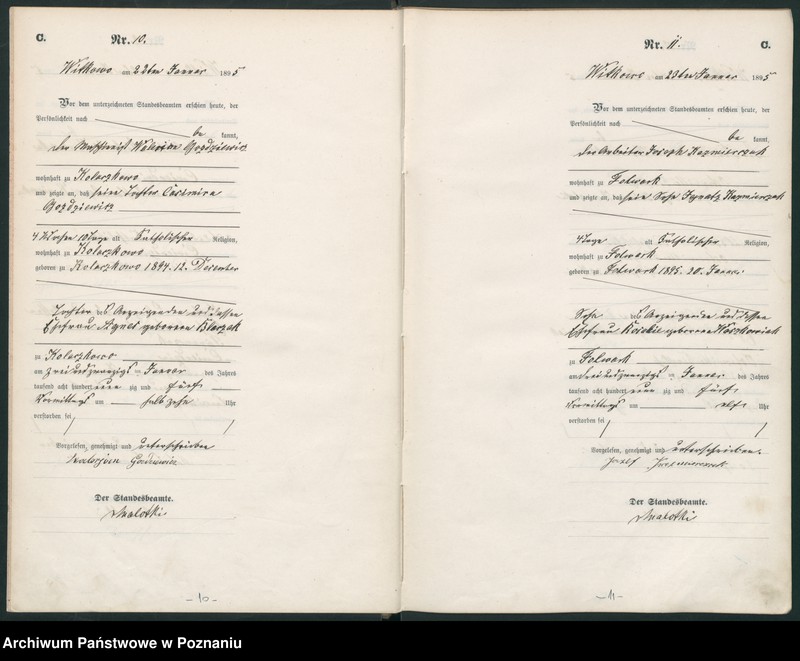 C. Nr. 10.
Witkowo am 22ten Januar 1895
Vor dem unterzeichneten Standesbeamten erschien heute, der
Persönlichkeit nach
be kannt,
der
wohnhaft zu Kolaczkowo
und zeigte an, daß seine Tochter Casimira
4 Wochen 10 Tage alt katholischer Religion,
wohnhaft zu Kolaczkowo
geboren zu Kolaczkowo 1894. 12. Dezember
Tochter des Anzeigenden und dessen
Ehefrau Agnes geborenen
zu Kolaczkowo
am zweiundzwanzigs ten Januar des Jahres
tausend acht hundert neun zig und fünf
Vormittags um halb zehn Uhr
verstorben sei
Vorgelesen, genehmigt und unterschrieben
Der Standesbeamte.
- 10 -
Nr. 11. C.
Witkowo am 23ten Januar 1895
Vor dem unterzeichneten Standesbeamten erschien heute, der
Persönlichkeit nach
be kannt,
der Arbeiter Joseph Kazmierczak
wohnhaft zu Folwark
und zeigte an, daß sein Sohn Ignatz Kazmierczak
4 Tage alt katholischer Religion,
wohnhaft zu Folwark
geboren zu Folwark 1895. 20. Januar
Sohn des Anzeigenden und dessen
Ehefrau geborenen
zu Folwark
am dreiundzwanzigs ten Januar des Jahres
tausend acht hundert neun zig und fünf
Vormittags um elf Uhr
verstorben sei
Vorgelesen, genehmigt und unterschrieben.
Józef
Der Standesbeamte.
- 11 -
Archiwum Państwowe w Poznaniu